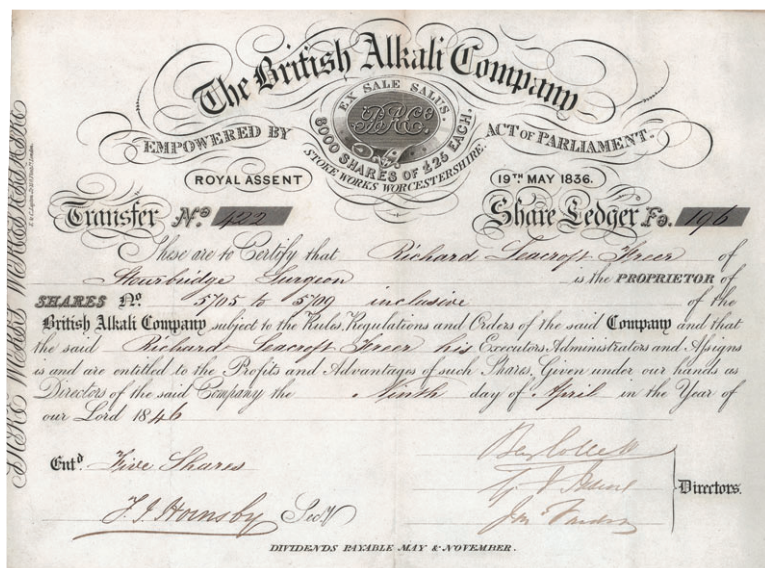 The British Alkali Company
EX SALE SALUS.
8000 SHARES OF £25 EACH.
STOKE WORKS WORCESTERSHIRE.
EMPOWERED BY ACT OF PARLIAMENT.
ROYAL ASSENT 19TH MAY 1836.
Transfer No. 422 Share Ledger Fo. 196
These are to Certify that Richard Leacroft Freer of
Stourbridge Surgeon is the PROPRIETOR of
SHARES No. 5705 to 5709 inclusive of the
British Alkali Company subject to the Rules, Regulations and Orders of the said Company and that
the said Richard Leacroft Freer his Executors, Administrators and Assigns
is and are entitled to the Profits and Advantages of such Shares, Given under our hands as
Directors of the said Company the Ninth day of April in the Year of
our Lord 1846
Entd. Five Shares
F. J. Hornsby Secy
Directors.
DIVIDENDS PAYABLE MAY & NOVEMBER.